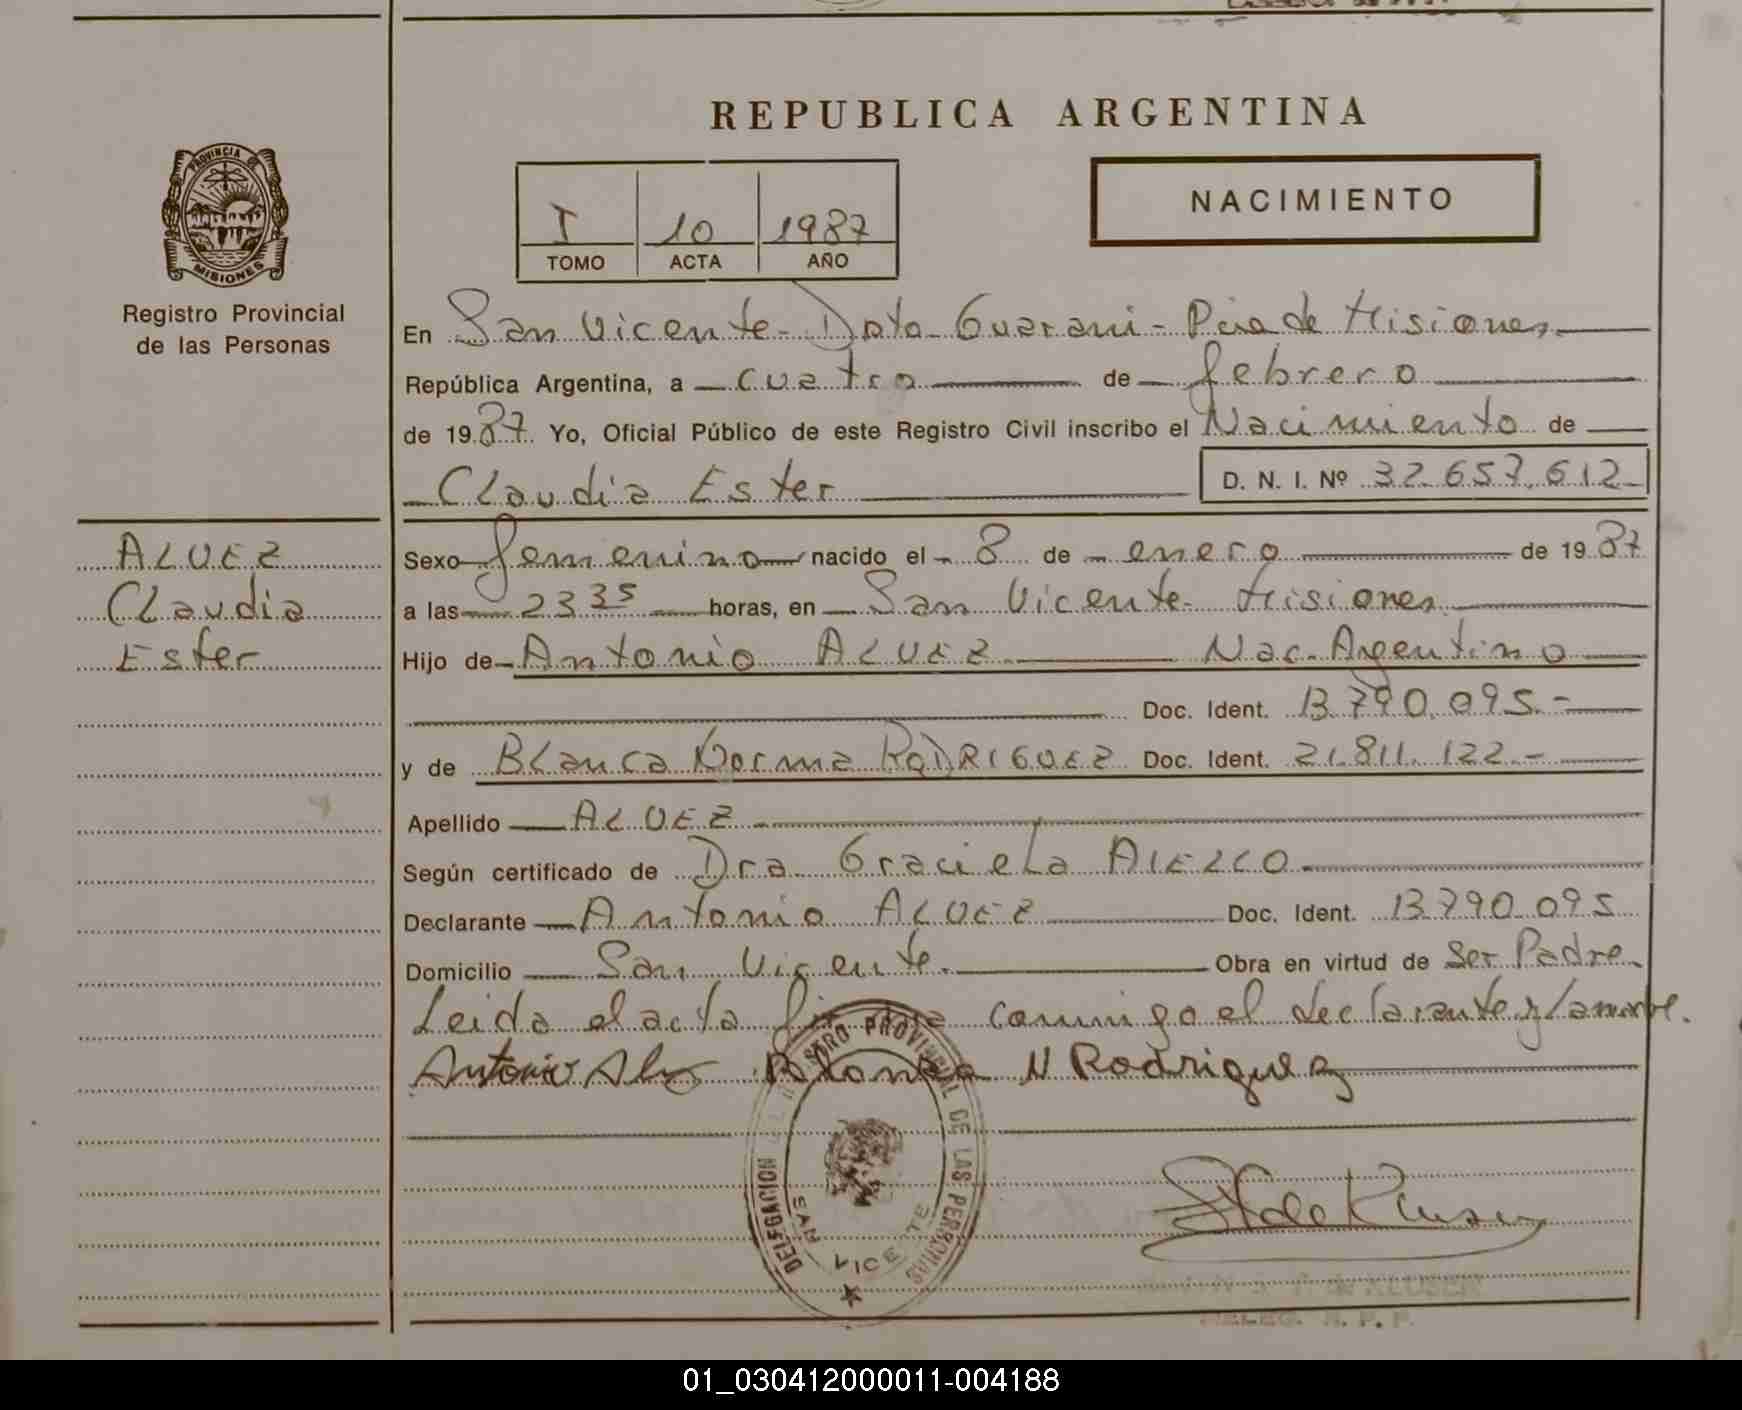 REPUBLICA ARGENTINA
NACIMIENTO
I 10 1987
TOMO ACTA AÑO
PROVINCIA DE
MISIONES
Registro Provincial
de las Personas
En San Vicente - Dpto Guarani - Pcia de Misiones.
República Argentina, a cuatro de febrero
de 1987. Yo, Oficial Público de este Registro Civil inscribo el Nacimiento de
Claudia Ester D. N. I. Nº 32.657.612
ALVEZ
Claudia
Ester
Sexo femenino nacido el 8 de enero de 1987
a las 23 35 horas, en San Vicente - Misiones
Hijo de Antonio ALVEZ Nac. Argentino
Doc. Ident. 13.790.095.-
y de Blanca Norma RODRIGUEZ Doc. Ident. 21.811.122.-
Apellido ALVEZ
Según certificado de Dra Graciela
Declarante Antonio ALVEZ Doc. Ident. 13.790.095
Domicilio San Vicente. Obra en virtud de Ser Padre.
Leida el acta conmigo el declarante y la madre.
Antonio Alvez Blanca N Rodriguez
DELEGACION REGISTRO PROVINCIAL DE LAS PERSONAS
SAN VICENTE
de KLUSER
DELEG. R. P. P.
01_030412000011-004188